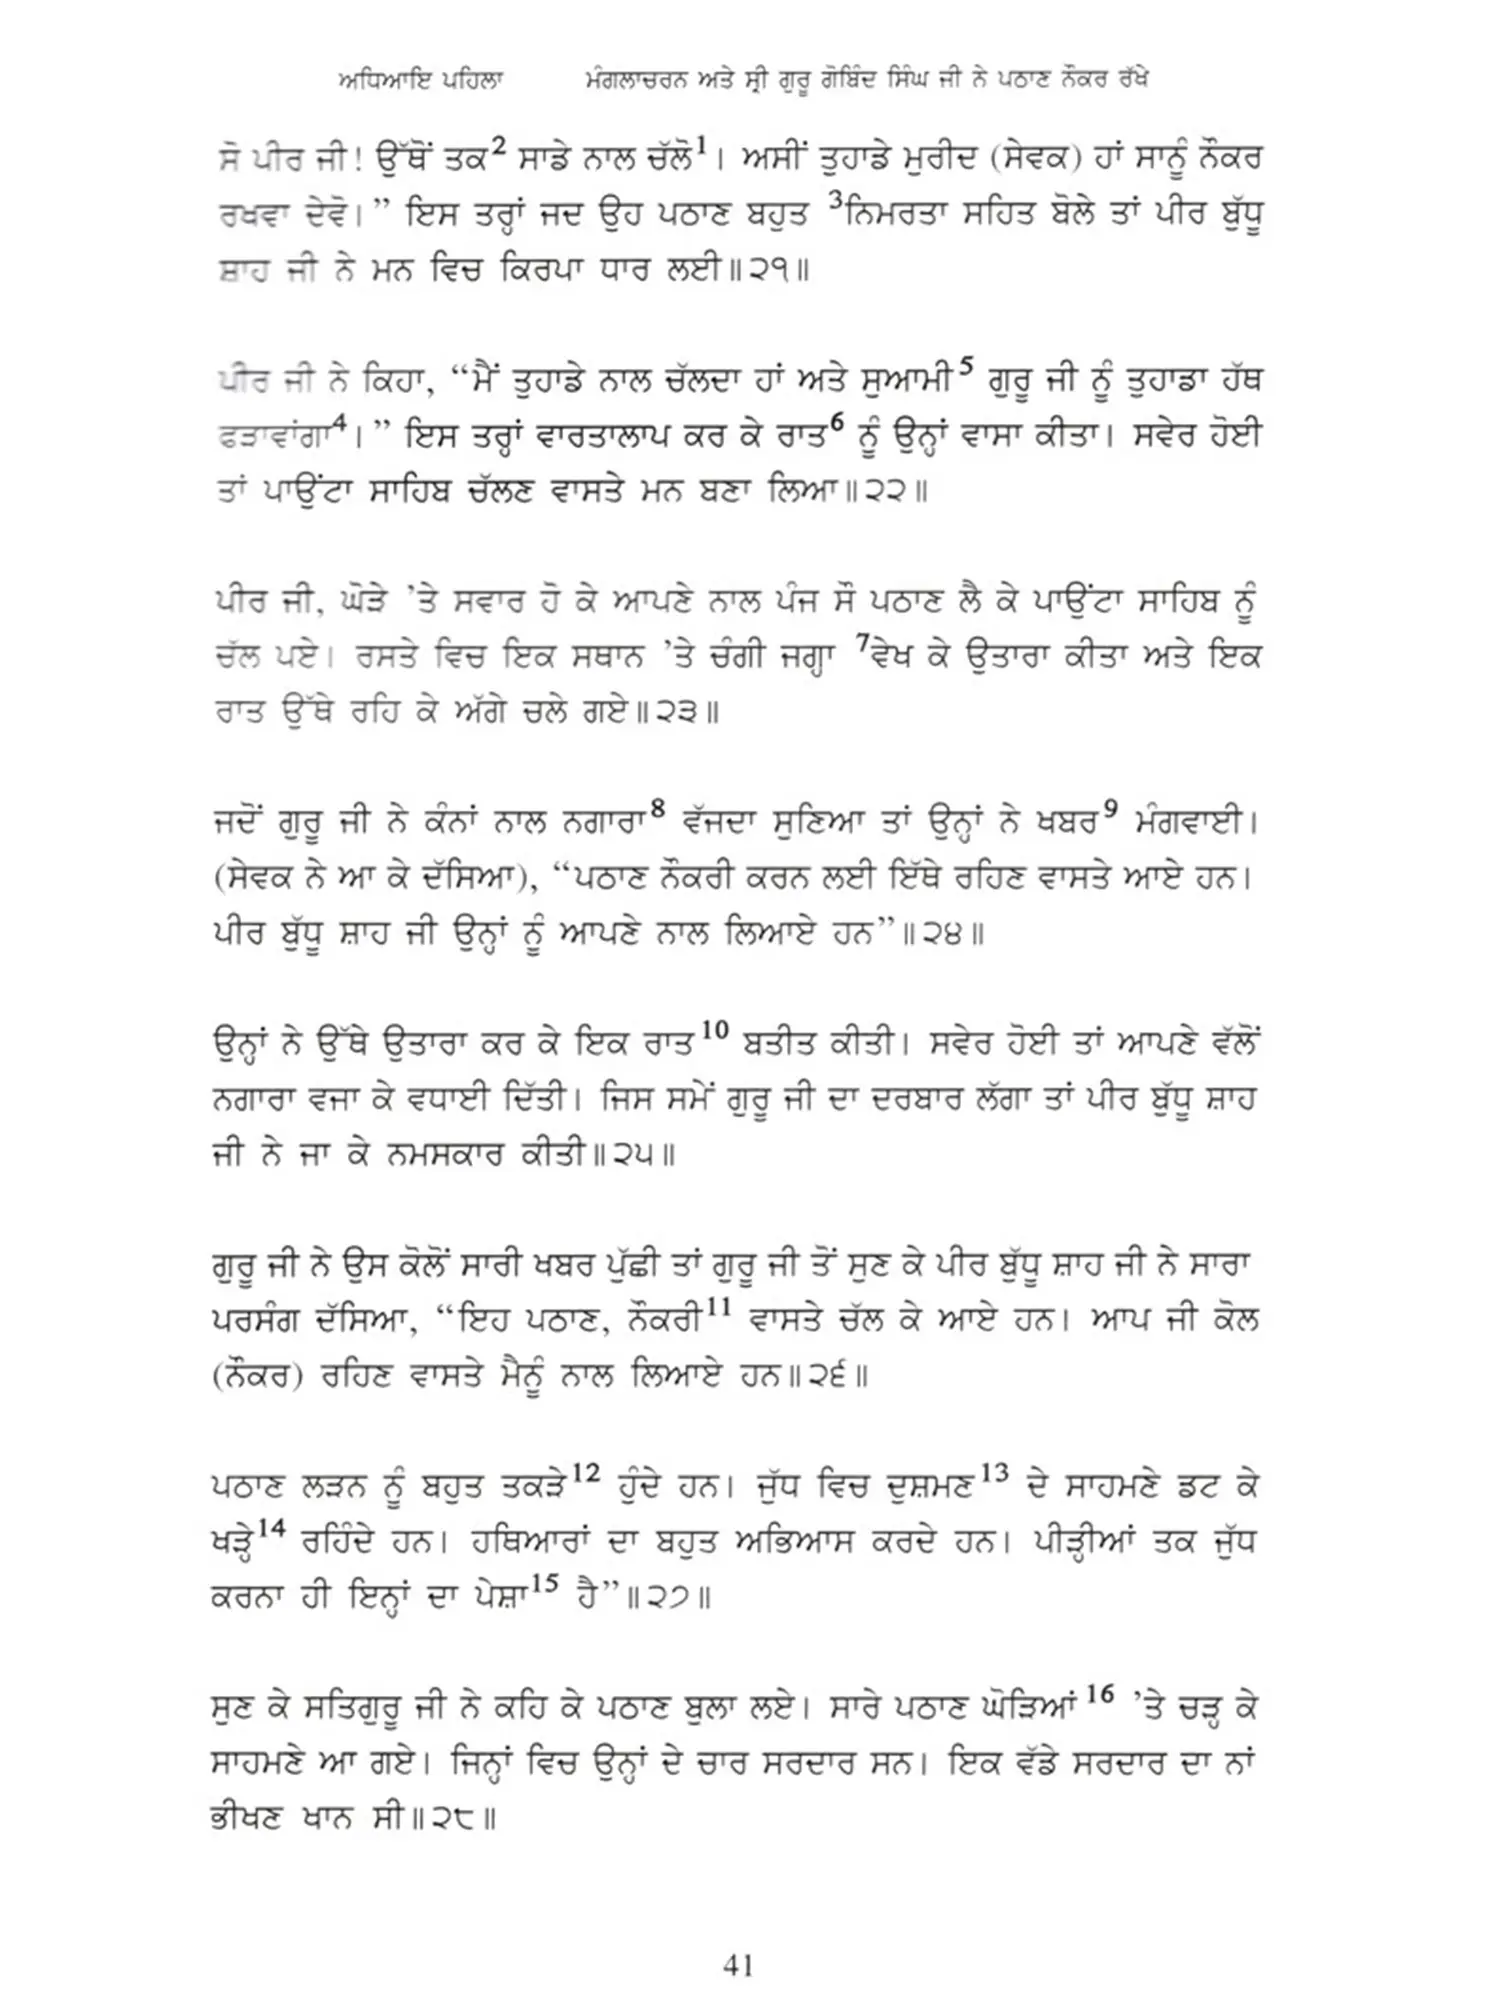 ਅਧਿਆਇ ਪਹਿਲਾ ਮੰਗਲਾਚਰਨ ਅਤੇ ਸ੍ਰੀ ਗੁਰੂ ਗੋਬਿੰਦ ਸਿੰਘ ਜੀ ਨੇ ਪਠਾਣ ਨੌਕਰ ਰੱਖੇ
ਸੋ ਪੀਰ ਜੀ! ਉੱਥੋਂ ਤਕ² ਸਾਡੇ ਨਾਲ ਚੱਲੋ¹। ਅਸੀਂ ਤੁਹਾਡੇ ਮੁਰੀਦ (ਸੇਵਕ) ਹਾਂ ਸਾਨੂੰ ਨੌਕਰ
ਰਖਵਾ ਦੇਵੋ।” ਇਸ ਤਰ੍ਹਾਂ ਜਦ ਉਹ ਪਠਾਣ ਬਹੁਤ ³ਨਿਮਰਤਾ ਸਹਿਤ ਬੋਲੇ ਤਾਂ ਪੀਰ ਬੁੱਧੂ
ਸ਼ਾਹ ਜੀ ਨੇ ਮਨ ਵਿਚ ਕਿਰਪਾ ਧਾਰ ਲਈ॥੨੧॥
ਪੀਰ ਜੀ ਨੇ ਕਿਹਾ, “ਮੈਂ ਤੁਹਾਡੇ ਨਾਲ ਚੱਲਦਾ ਹਾਂ ਅਤੇ ਸੁਆਮੀ⁵ ਗੁਰੂ ਜੀ ਨੂੰ ਤੁਹਾਡਾ ਹੱਥ
ਫੜਾਵਾਂਗਾ⁴।” ਇਸ ਤਰ੍ਹਾਂ ਵਾਰਤਾਲਾਪ ਕਰ ਕੇ ਰਾਤ⁶ ਨੂੰ ਉਨ੍ਹਾਂ ਵਾਸਾ ਕੀਤਾ। ਸਵੇਰ ਹੋਈ
ਤਾਂ ਪਾਉਂਟਾ ਸਾਹਿਬ ਚੱਲਣ ਵਾਸਤੇ ਮਨ ਬਣਾ ਲਿਆ॥੨੨॥
ਪੀਰ ਜੀ, ਘੋੜੇ ’ਤੇ ਸਵਾਰ ਹੋ ਕੇ ਆਪਣੇ ਨਾਲ ਪੰਜ ਸੌ ਪਠਾਣ ਲੈ ਕੇ ਪਾਉਂਟਾ ਸਾਹਿਬ ਨੂੰ
ਚੱਲ ਪਏ। ਰਸਤੇ ਵਿਚ ਇਕ ਸਥਾਨ ’ਤੇ ਚੰਗੀ ਜਗ੍ਹਾ ⁷ਵੇਖ ਕੇ ਉਤਾਰਾ ਕੀਤਾ ਅਤੇ ਇਕ
ਰਾਤ ਉੱਥੇ ਰਹਿ ਕੇ ਅੱਗੇ ਚਲੇ ਗਏ॥੨੩॥
ਜਦੋਂ ਗੁਰੂ ਜੀ ਨੇ ਕੰਨਾਂ ਨਾਲ ਨਗਾਰਾ⁸ ਵੱਜਦਾ ਸੁਣਿਆ ਤਾਂ ਉਨ੍ਹਾਂ ਨੇ ਖਬਰ⁹ ਮੰਗਵਾਈ।
(ਸੇਵਕ ਨੇ ਆ ਕੇ ਦੱਸਿਆ), “ਪਠਾਣ ਨੌਕਰੀ ਕਰਨ ਲਈ ਇੱਥੇ ਰਹਿਣ ਵਾਸਤੇ ਆਏ ਹਨ।
ਪੀਰ ਬੁੱਧੂ ਸ਼ਾਹ ਜੀ ਉਨ੍ਹਾਂ ਨੂੰ ਆਪਣੇ ਨਾਲ ਲਿਆਏ ਹਨ”॥੨੪॥
ਉਨ੍ਹਾਂ ਨੇ ਉੱਥੇ ਉਤਾਰਾ ਕਰ ਕੇ ਇਕ ਰਾਤ¹⁰ ਬਤੀਤ ਕੀਤੀ। ਸਵੇਰ ਹੋਈ ਤਾਂ ਆਪਣੇ ਵੱਲੋਂ
ਨਗਾਰਾ ਵਜਾ ਕੇ ਵਧਾਈ ਦਿੱਤੀ। ਜਿਸ ਸਮੇਂ ਗੁਰੂ ਜੀ ਦਾ ਦਰਬਾਰ ਲੱਗਾ ਤਾਂ ਪੀਰ ਬੁੱਧੂ ਸ਼ਾਹ
ਜੀ ਨੇ ਜਾ ਕੇ ਨਮਸਕਾਰ ਕੀਤੀ॥੨੫॥
ਗੁਰੂ ਜੀ ਨੇ ਉਸ ਕੋਲੋਂ ਸਾਰੀ ਖਬਰ ਪੁੱਛੀ ਤਾਂ ਗੁਰੂ ਜੀ ਤੋਂ ਸੁਣ ਕੇ ਪੀਰ ਬੁੱਧੂ ਸ਼ਾਹ ਜੀ ਨੇ ਸਾਰਾ
ਪਰਸੰਗ ਦੱਸਿਆ, “ਇਹ ਪਠਾਣ, ਨੌਕਰੀ¹¹ ਵਾਸਤੇ ਚੱਲ ਕੇ ਆਏ ਹਨ। ਆਪ ਜੀ ਕੋਲ
(ਨੌਕਰ) ਰਹਿਣ ਵਾਸਤੇ ਮੈਨੂੰ ਨਾਲ ਲਿਆਏ ਹਨ॥੨੬॥
ਪਠਾਣ ਲੜਨ ਨੂੰ ਬਹੁਤ ਤਕੜੇ¹² ਹੁੰਦੇ ਹਨ। ਜੁੱਧ ਵਿਚ ਦੁਸ਼ਮਣ¹³ ਦੇ ਸਾਹਮਣੇ ਡਟ ਕੇ
ਖੜ੍ਹੇ¹⁴ ਰਹਿੰਦੇ ਹਨ। ਹਥਿਆਰਾਂ ਦਾ ਬਹੁਤ ਅਭਿਆਸ ਕਰਦੇ ਹਨ। ਪੀੜ੍ਹੀਆਂ ਤਕ ਜੁੱਧ
ਕਰਨਾ ਹੀ ਇਨ੍ਹਾਂ ਦਾ ਪੇਸ਼ਾ¹⁵ ਹੈ”॥੨੭॥
ਸੁਣ ਕੇ ਸਤਿਗੁਰੂ ਜੀ ਨੇ ਕਹਿ ਕੇ ਪਠਾਣ ਬੁਲਾ ਲਏ। ਸਾਰੇ ਪਠਾਣ ਘੋੜਿਆਂ¹⁶ ’ਤੇ ਚੜ੍ਹ ਕੇ
ਸਾਹਮਣੇ ਆ ਗਏ। ਜਿਨ੍ਹਾਂ ਵਿਚ ਉਨ੍ਹਾਂ ਦੇ ਚਾਰ ਸਰਦਾਰ ਸਨ। ਇਕ ਵੱਡੇ ਸਰਦਾਰ ਦਾ ਨਾਂ
ਭੀਖਣ ਖਾਨ ਸੀ॥੨੮॥
41